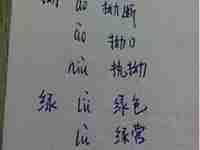 拗 ǎo 拗断
ào 拗口
niù 执拗
绿 lǜ 绿色
lù 绿营